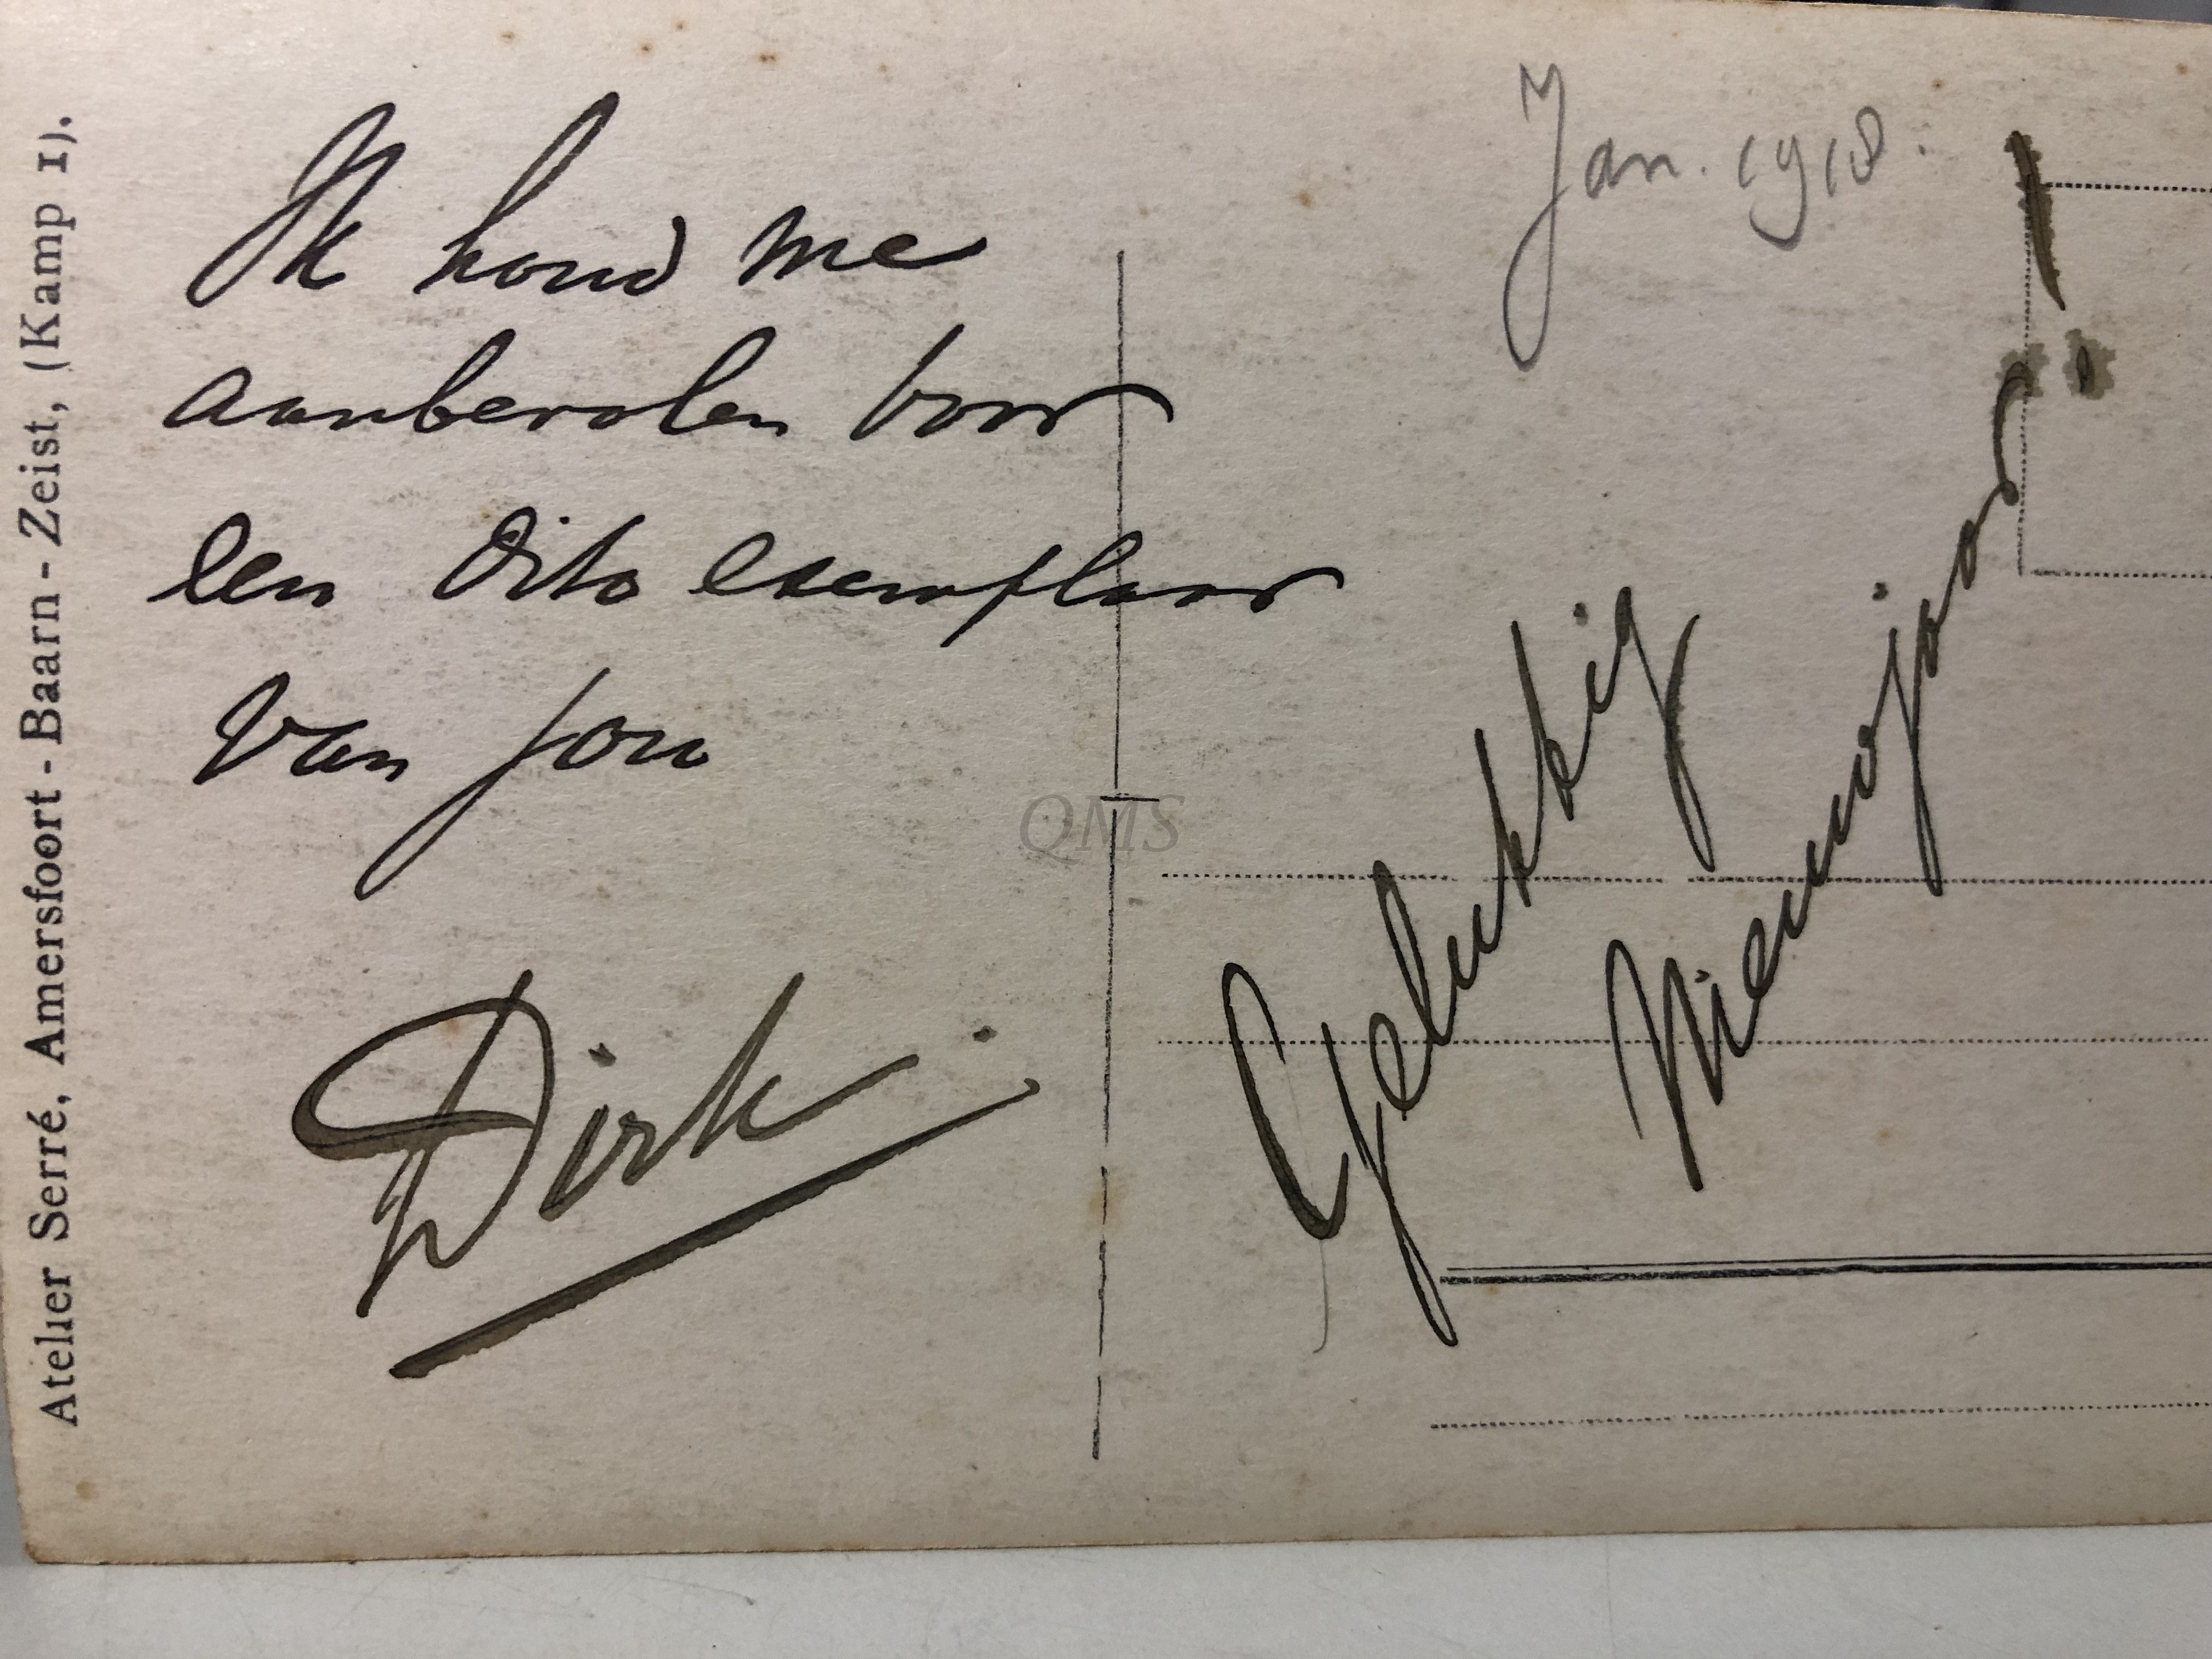 Atelier Serré, Amersfoort - Baarn - Zeist, (Kamp I).
Ik houd me
aanbevolen voor
een dito exemplaar
van jou
Dirk.
Jan. 1918.
Gelukkig
Nieuwjaar!
QMS